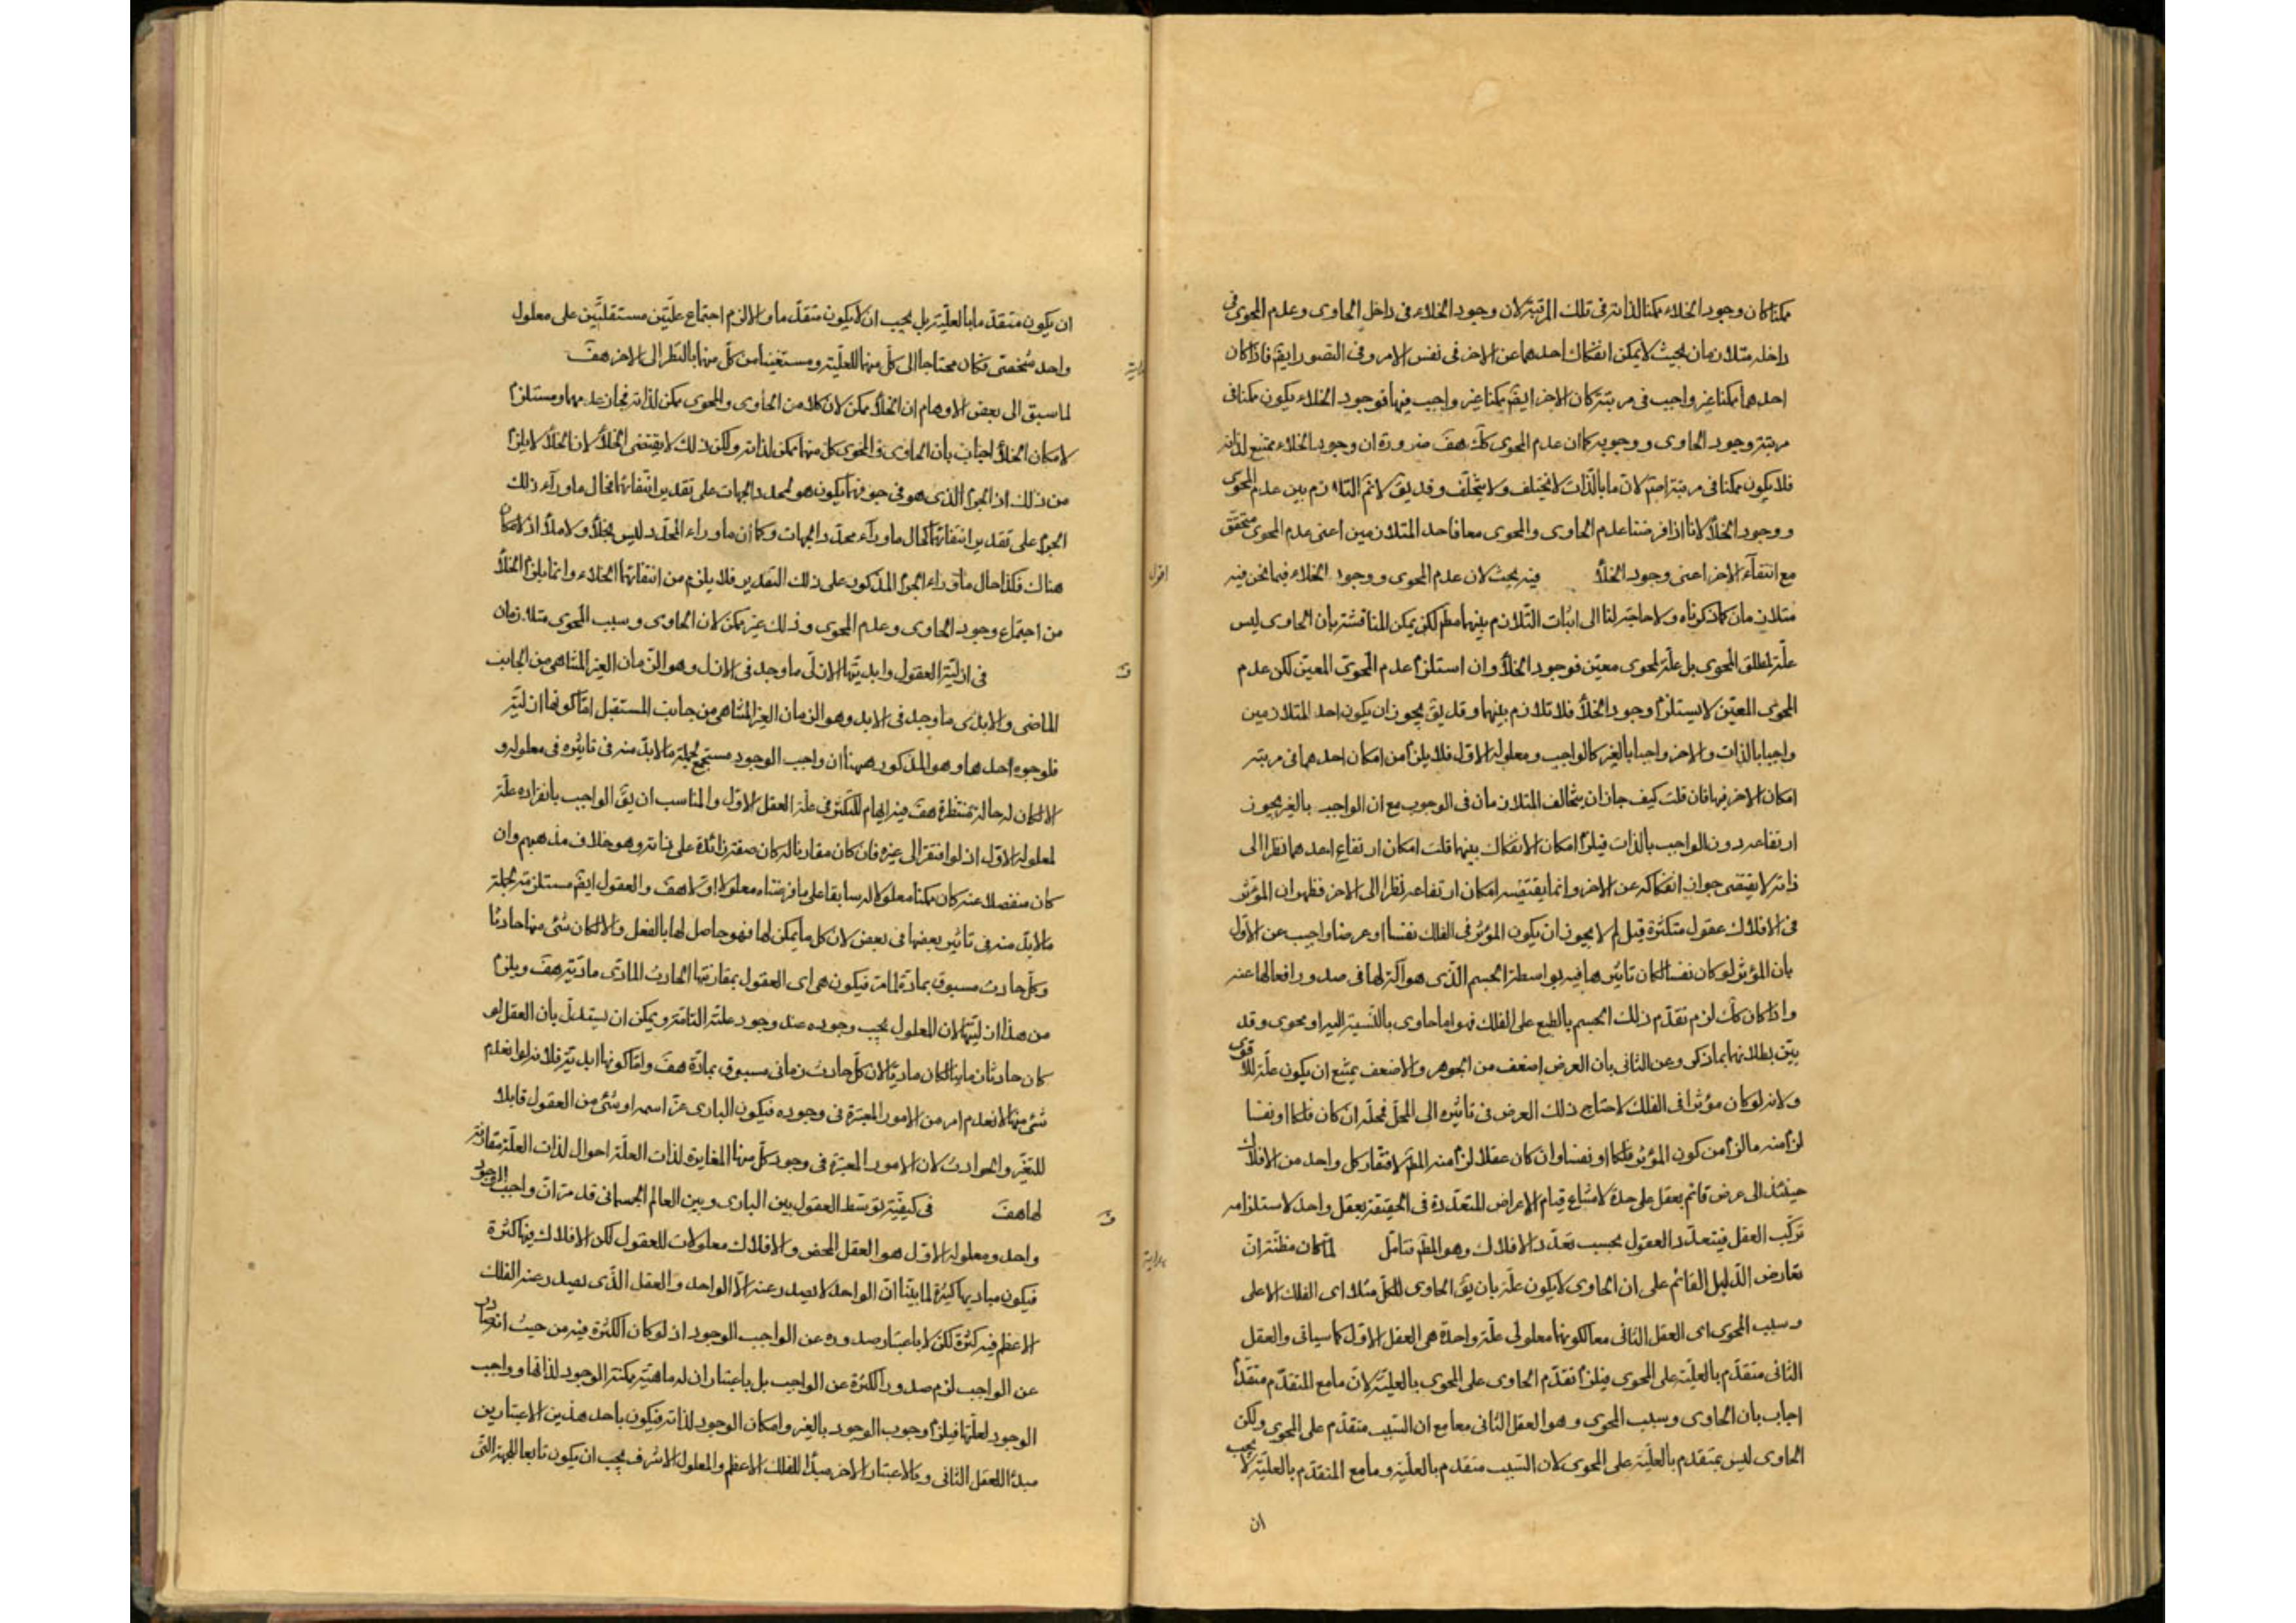 ممكنا كان وجود الخلاء ممكنا لذاته فى تلك المرتبة لان وجود الخلاء فى داخل الحاوى وعدم المحوى فى
داخله متلازمان بحيث لا يمكن انفكاك احدهما عن الاخر فى نفس الامر وفى التصور ايضً فاذا كان
احدهما ممكنا غير واجب فى مرتبة كان الاخر ايضً ممكنا غير واجب فيها فوجود الخلاء يكون ممكنا فى
مرتبة وجود الحاوى ووجوبه كما ان عدم المحوى كك هف ضرورة ان وجود الخلاء ممتنع لذاته
فلا يكون ممكنا فى مرتبة اصلا لان ما بالذات لا يختلف ولا يتخلف وقد يق لا نم التلازم بين عدم المحوى
ووجود الخلأ لانا اذا فرضنا عدم الحاوى والمحوى معا فاحد المتلازمين اعنى عدم المحوى متحقق
مع انتفآء الاخر اعنى وجود الخلأ اقول فيه بحث لان عدم المحوى ووجود الخلاء فيما نحن فيه
متلازمان كما ذكرناه ولا حاجة لنا الى اثبات التلازم بينهما مطم لكن يمكن المناقشة بان الحاوى ليس
علة لمطلق المحوى بل علة لمحوى معين فوجود الخلأ وان استلزم عدم المحوى المعين لكن عدم
المحوى المعين لا يستلزم وجود الخلأ فلا تلازم بينهما وقد يق يجوز ان يكون احد المتلازمين
واجبا بالذات والاخر واجبا بالغير كالواجب ومعلوله الاول فلا يلزم من امكان احدهما فى مرتبة
امكان الاخر فيها فان قلت كيف جاز ان يتخالف المتلازمان فى الوجوب مع ان الواجب بالغير يجوز
ارتفاعه دون الواجب بالذات فيلزم امكان الانفكاك بينهما قلت امكان ارتفاع احدهما نظرا الى
ذاته لا يقتضى جواز انفكاكه عن الاخر وانما يقتضيه امكان ارتفاعه نظرا الى الاخر فظهر ان المؤثر
فى الافلاك عقول متكثرة قيل لم لا يجوز ان يكون المؤثر فى الفلك نفسا او عرضا واجيب عن الاول
بان المؤثر لو كان نفسا لكان تاثيرها فيه بواسطة الجسم الذى هو آلة لها فى صدور افعالها عنه
واذا كان كك لزم تقدم ذلك الجسم بالطبع على الفلك فهو اما حاوى بالنسبة اليه او محوى وقد
بين بطلانهما بما ذكر وعن الثانى بان العرض اضعف من الجوهر والاضعف يمتنع ان يكون علة للاقوى
ولانه لو كان مؤثرا فى الفلك لاحتاج ذلك العرض فى تاثيره الى المحل فمحله ان كان فلكا او نفسا
لزم منه ما لزم من كون المؤثر فلكا او نفسا وان كان عقلا لزم منه المطم لافتقار كل واحد من الافلاك
حينئذ الى عرض قائم بعقل على حدة لامتناع قيام الاعراض المتعددة فى الحقيقة بعقل واحد لاستلزامه
تركب العقل فيتعدد العقول بحسب تعدد الافلاك وهو المطم فتامل هداية لما كان مظنة ان
تعارض الدليل القائم على ان الحاوى لا يكون علة بان يق الحاوى للكل مثلا اى الفلك الاعلى
وسبب المحوى اى العقل الثانى معا لكونهما معلولى علة واحدة هى العقل الاول كما سياتى والعقل
الثانى متقدم بالعلية على المحوى فيلزم تقدم الحاوى على المحوى بالعلية لان ما مع المتقدم متقدم
اجاب بان الحاوى وسبب المحوى وهو العقل الثانى معا مع ان السبب متقدم على المحوى ولكن
الحاوى ليس بمتقدم بالعلية على المحوى لان السبب متقدم بالعلية وما مع المتقدم بالعلية لا يجب
ان
ان يكون متقدما بالعلية بل يجب ان لا يكون متقدما والا لزم اجتماع علتين مستقلتين على معلول
واحد شخصى فكان محتاجا الى كل منهما للعلية ومستغنيا من كل منهما بالنظر الى الاخر هف
هداية لما سبق الى بعض الاوهام ان الخلأ ممكن لان كلا من الحاوى والمحوى ممكن لذاته فجاز عدمهما ومستلزم
لامكان الخلأ اجاب بان الحاوى والمحوى كل منهما ممكن لذاته ولكن ذلك لا يقتضى الخلأ لان الخلأ لا يلزم
من ذلك اذ الجزء الذى هو فى جوفهما يكون هو لمحدد الجهات على تقدير انتفائهما فحال ماورآء ذلك
الجزء على تقدير انتفائهما كحال ماورآء محدد الجهات وكما ان ماوراء المحدد ليس بخلأ ولا ملأ اذ لا مكان
هناك فكذا حال ماوراء الجزء المذكور على ذلك التقدير فلا يلزم من انتفائهما الخلاء وانما يلزم الخلأ
من اجتماع وجود الحاوى وعدم المحوى وذلك غير ممكن لان الحاوى وسبب المحوى متلازمان
ف فى ازلية العقول وابديتها الازلى ماوجد فى الازل وهو الزمان الغير المتناهى من الجانب
الماضى والابدى ماوجد فى الابد وهو الزمان الغير المتناهى من جانب المستقبل اما كونها ازلية
فلوجوه احدها وهو المذكور ههنا ان واجب الوجود مستجمع لجملة ما لابد منه فى تاثيره فى معلوله و
الا لكان له حالة منتظرة هف فيه ايهام للتكثر فى علة العقل الاول والمناسب ان يق الواجب بانفراده علة
لمعلوله الاول اذ لو افتقر الى غيره فان كان مقارنا له كان صفة زائدة على ذاته وهو خلاف مذهبهم وان
كان منفصلا عنه كان ممكنا معلولا له سابقا على ما فرضناه معلولا اولا هف والعقول ايضً مستلزمة لجملة
ما لابد منه فى تاثير بعضها فى بعض لان كل ما يمكن لها فهو حاصل لها بالفعل والا لكان شئ منها حادثا
وكل حادث مسبوق بمادة لما مر فيكون هى اى العقول بمقارنتها الحادث المادى مادية هف ويلزم
من هذا ازليتها لان المعلول يجب وجوده عند وجود علته التامة ويمكن ان يستدل بان العقل لو
كان حادثا زمانيا لكان ماديا لان كل حادث زمانى مسبوق بمادة هف واما كونها ابدية فلانه لو انعدم
شئ منها لانعدم امر من الامور المعتبرة فى وجوده فيكون البارى عز اسمه او شئ من العقول قابلا
للتغير والحوادث لان الامور المعتبرة فى وجود كل منها المغايرة لذات العلة احوال لذات العلة مقارنة
لها هف ف فى كيفية توسط العقول بين البارى وبين العالم الجسمانى قد مر ان واجب الوجود
واحد ومعلوله الاول هو العقل المحض والافلاك معلولات للعقول لكن الافلاك فيها كثرة
فيكون مباديها كثيرة لما بينا ان الواحد لا يصدر عنه الا الواحد والعقل الذى يصدر عنه الفلك
الاعظم فيه كثرة لكن لا باعتبار صدوره عن الواجب الوجود اذ لو كان الكثرة فيه من حيث انه صادر
عن الواجب لزم صدور الكثرة عن الواجب بل باعتبار ان له ماهية ممكنة الوجود لذاتها وواجب
الوجود لعلتها فيلزم وجوب الوجود بالغير وامكان الوجود لذاته فيكون باحد هذين الاعتبارين
مبدأ للعقل الثانى وبالاعتبار الاخر مبدأ للفلك الاعظم والمعلول الاشرف يجب ان يكون تابعا للجهة التى